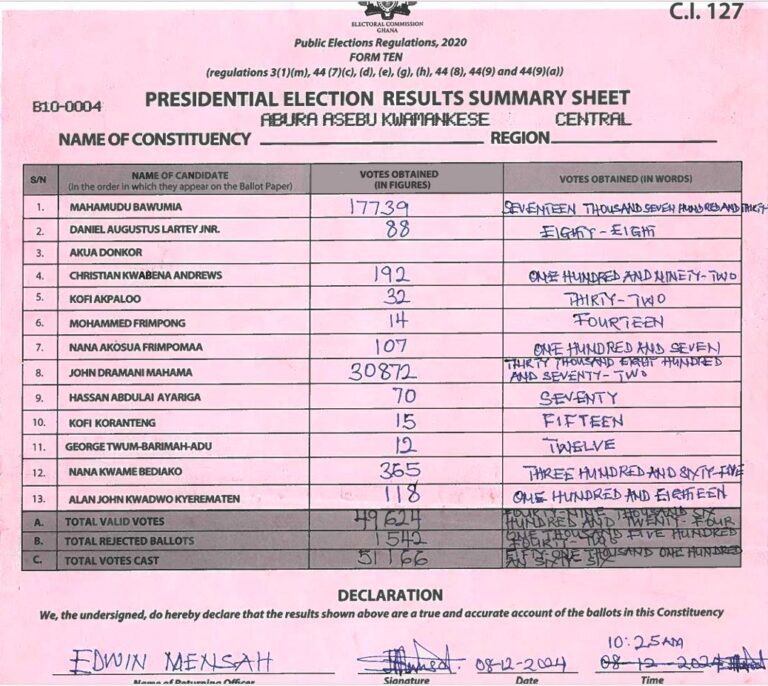 C.I. 127
ELECTORAL COMMISSION
GHANA
Public Elections Regulations, 2020
FORM TEN
(regulations 3(1)(m), 44 (7)(c), (d), (e), (g), (h), 44 (8), 44(9) and 44(9)(a))
B10-0004 PRESIDENTIAL ELECTION RESULTS SUMMARY SHEET
ABURA ASEBU KWAMANKESE CENTRAL
NAME OF CONSTITUENCY REGION
S/N NAME OF CANDIDATE (In the order in which they appear on the Ballot Paper) VOTES OBTAINED (IN FIGURES) VOTES OBTAINED (IN WORDS)
1. MAHAMUDU BAWUMIA 17739 SEVENTEEN THOUSAND SEVEN HUNDRED AND THIRTY
2. DANIEL AUGUSTUS LARTEY JNR. 88 EIGHTY-EIGHT
3. AKUA DONKOR
4. CHRISTIAN KWABENA ANDREWS 192 ONE HUNDRED AND NINETY-TWO
5. KOFI AKPALOO 32 THIRTY-TWO
6. MOHAMMED FRIMPONG 14 FOURTEEN
7. NANA AKOSUA FRIMPOMAA 107 ONE HUNDRED AND SEVEN
8. JOHN DRAMANI MAHAMA 30872 THIRTY THOUSAND EIGHT HUNDRED AND SEVENTY-TWO
9. HASSAN ABDULAI AYARIGA 70 SEVENTY
10. KOFI KORANTENG 15 FIFTEEN
11. GEORGE TWUM-BARIMAH-ADU 12 TWELVE
12. NANA KWAME BEDIAKO 365 THREE HUNDRED AND SIXTY-FIVE
13. ALAN JOHN KWADWO KYEREMATEN 118 ONE HUNDRED AND EIGHTEEN
A. TOTAL VALID VOTES 49624 FOURTY-NINE THOUSAND SIX HUNDRED AND TWENTY-FOUR
B. TOTAL REJECTED BALLOTS 1542 ONE THOUSAND FIVE HUNDRED FOURTY-TWO
C. TOTAL VOTES CAST 51166 FIFTY-ONE THOUSAND ONE HUNDRED AN SIXTY-SIX
DECLARATION
We, the undersigned, do hereby declare that the results shown above are a true and accurate account of the ballots in this Constituency
10:25AM
EDWIN MENSAH 08-12-2024 08-12-2024
Name of Returning Officer Signature Date Time